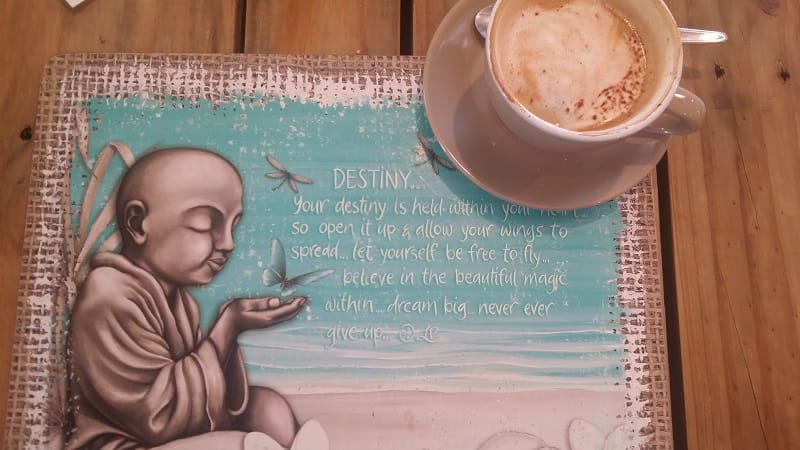 DESTINY...
Your destiny is held within your
so open it up & allow your wings to
spread... let yourself be free to fly...
believe in the beautiful magic
within... dream big... never ever
give up...